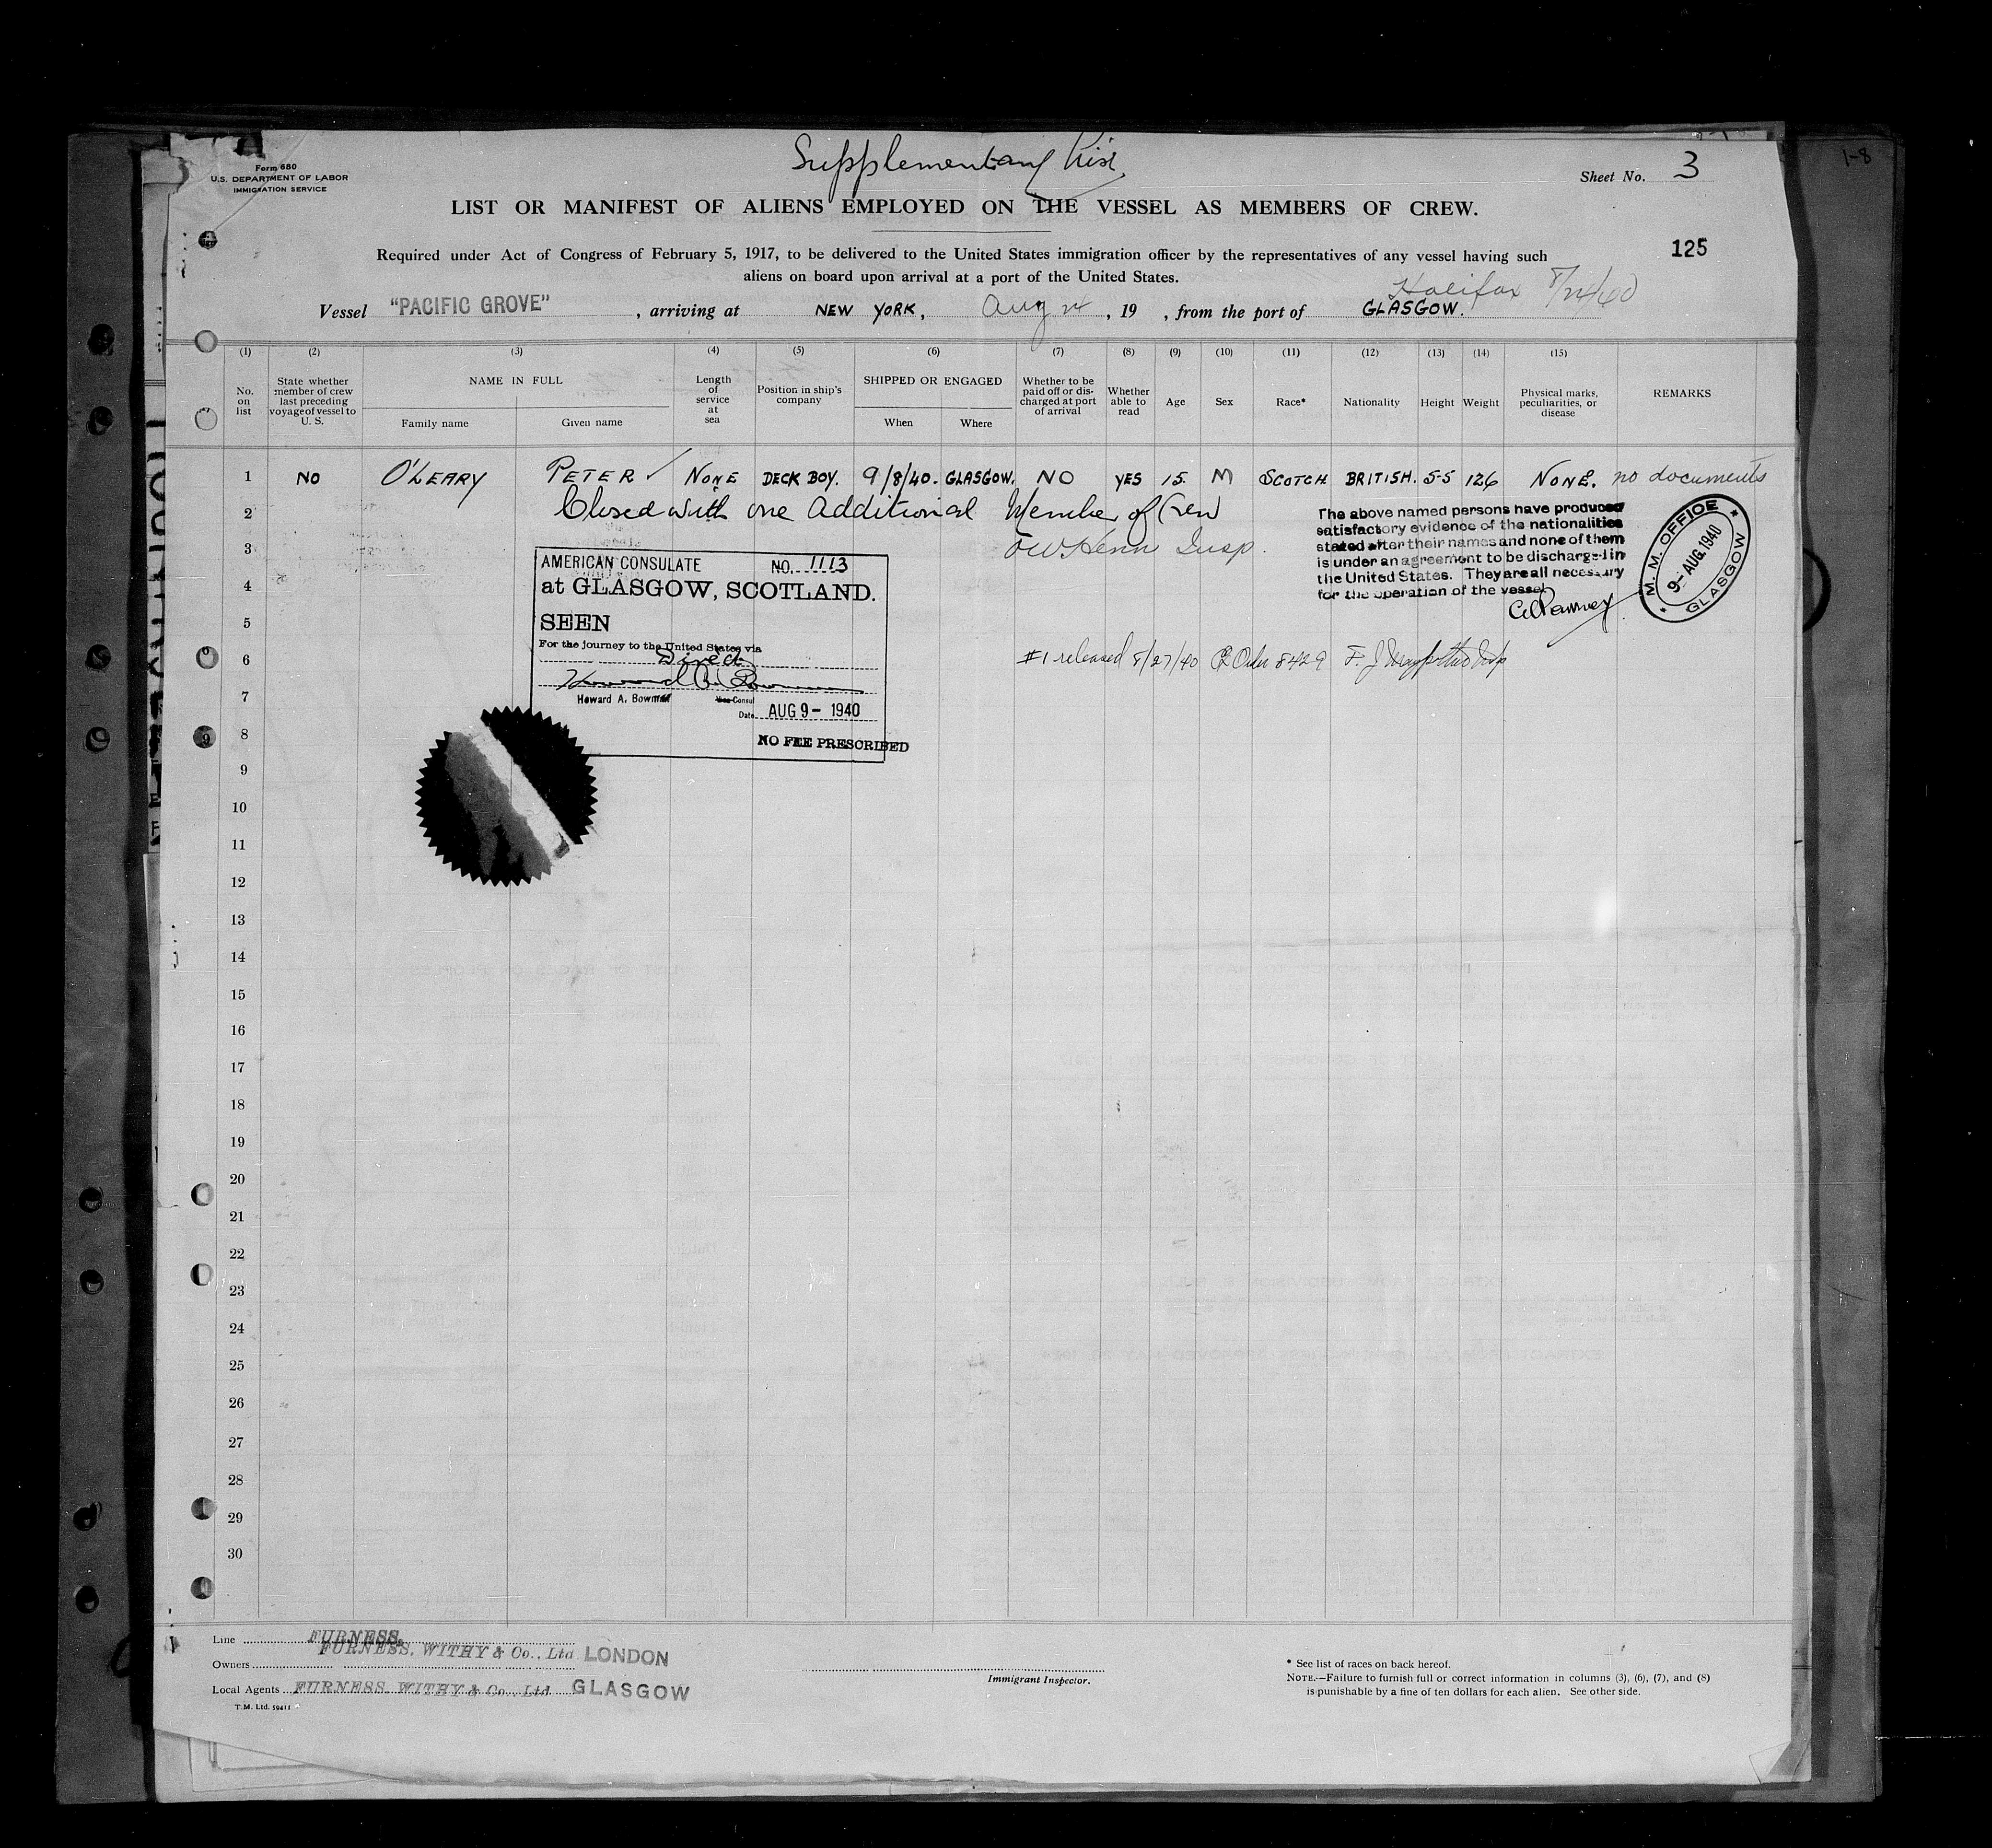 1-8
Supplementary List
Form 680
U.S. DEPARTMENT OF LABOR
IMMIGRATION SERVICE
Sheet No. 3
LIST OR MANIFEST OF ALIENS EMPLOYED ON THE VESSEL AS MEMBERS OF CREW.
Required under Act of Congress of February 5, 1917, to be delivered to the United States immigration officer by the representatives of any vessel having such
aliens on board upon arrival at a port of the United States.
125
Halifax
Vessel "PACIFIC GROVE", arriving at NEW YORK, Aug 24, 19 , from the port of GLASGOW.
(1) (2) (3) (4) (5) (6) (7) (8) (9) (10) (11) (12) (13) (14) (15)
No. on list
State whether member of crew last preceding voyage of vessel to U. S.
NAME IN FULL
Family name
Given name
Length of service at sea
Position in ship's company
SHIPPED OR ENGAGED
When
Where
Whether to be paid off or discharged at port of arrival
Whether able to read
Age
Sex
Race*
Nationality
Height
Weight
Physical marks, peculiarities, or disease
REMARKS
1 NO O'LEARY PETER ✓ NONE DECK BOY. 9/8/40. GLASGOW. NO YES 15. M SCOTCH BRITISH. 5-5 126 NONE. no documents
2 Closed with one Additional Member of Crew
3 Insp.
The above named persons have produced
satisfactory evidence of the nationalities
stated after their names and none of them
is under an agreement to be discharged in
the United States. They are all necessary
for the operation of the vessel
M. M. OFFICE
9- AUG. 1940
GLASGOW
AMERICAN CONSULATE NO. 1113
at GLASGOW, SCOTLAND.
SEEN
For the journey to the United States via
Direct
Howard A. Bowman
Howard A. Bowman Vice Consul
Date AUG 9- 1940
NO FEE PRESCRIBED
4
5
6 #1 released 8/27/40 Order 8429
7
8
9
10
11
12
13
14
15
16
17
18
19
20
21
22
23
24
25
26
27
28
29
30
Line FURNESS.
Owners FURNESS, WITHY & Co., Ltd LONDON
Local Agents FURNESS, WITHY & Co., Ltd GLASGOW
T.M. Ltd. 59411
Immigrant Inspector.
* See list of races on back hereof.
NOTE.—Failure to furnish full or correct information in columns (3), (6), (7), and (8)
is punishable by a fine of ten dollars for each alien. See other side.